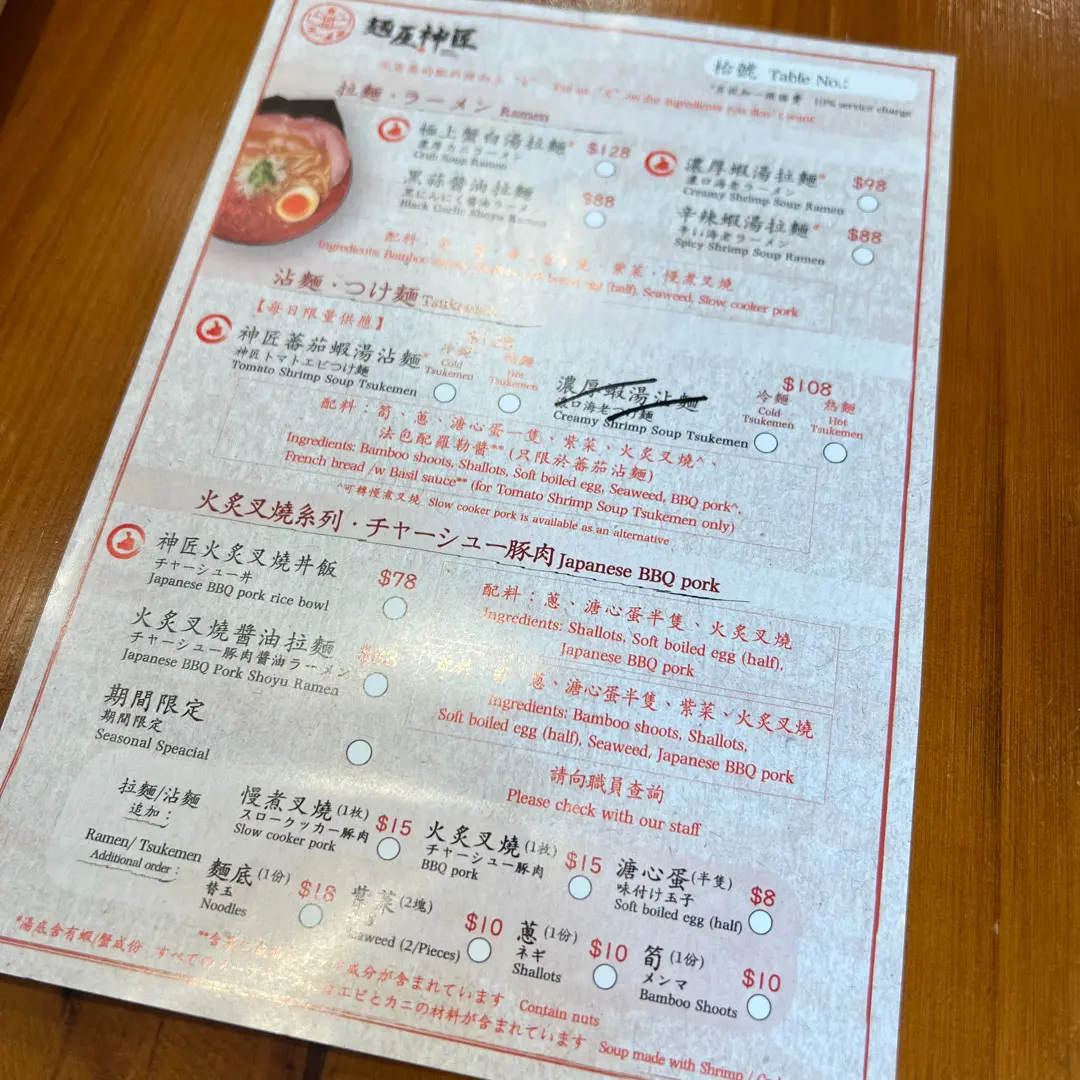 麵屋神匠
枱號 Table No.:
*在此加一服務費 10% service charge
Put an "X" on the ingredients you don't want
拉麵・ラーメン Ramen
極上蟹白湯拉麵* $128
濃厚カニラーメン
Crab Soup Ramen
黑蒜醬油拉麵 $88
黒にんにく醤油ラーメン
Black Garlic Shoyu Ramen
濃厚蝦湯拉麵* $98
濃口海老ラーメン
Creamy Shrimp Soup Ramen
辛辣蝦湯拉麵* $88
辛い海老ラーメン
Spicy Shrimp Soup Ramen
配料 紫菜、慢煮叉燒
Ingredients: Bamboo boiled egg (half), Seaweed, Slow cooker pork
沾麵・つけ麵 Tsukemen
【每日限量供應】
神匠蕃茄蝦湯沾麵*
神匠トマトエビつけ麵
Tomato Shrimp Soup Tsukemen
冷麵
Cold
Tsukemen
熱麵
Hot
Tsukemen
濃厚蝦湯沾麵
濃口海老つけ麵
Creamy Shrimp Soup Tsukemen
$108
冷麵
Cold
Tsukemen
熱麵
Hot
Tsukemen
配料：筍、蔥、溏心蛋一隻、紫菜、火炙叉燒^、
法包配羅勒醬** (只限於蕃茄沾麵)
Ingredients: Bamboo shoots, Shallots, Soft boiled egg, Seaweed, BBQ pork^,
French bread /w Basil sauce** (for Tomato Shrimp Soup Tsukemen only)
^可轉慢煮叉燒 Slow cooker pork is available as an alternative
火炙叉燒系列・チャーシュー豚肉 Japanese BBQ pork
神匠火炙叉燒丼飯 $78
チャーシュー丼
Japanese BBQ pork rice bowl
配料：蔥、溏心蛋半隻、火炙叉燒
Ingredients: Shallots, Soft boiled egg (half),
Japanese BBQ pork
火炙叉燒醬油拉麵
チャーシュー豚肉醤油ラーメン
Japanese BBQ Pork Shoyu Ramen
蔥、溏心蛋半隻、紫菜、火炙叉燒
Ingredients: Bamboo shoots, Shallots,
Soft boiled egg (half), Seaweed, Japanese BBQ pork
期間限定
期間限定
Seasonal Speacial
請向職員查詢
Please check with our staff
拉麵/沾麵
追加：
Ramen/ Tsukemen
Additional order :
慢煮叉燒 (1枚) $15
スロークッカー豚肉
Slow cooker pork
火炙叉燒 (1枚) $15
チャーシュー豚肉
BBQ pork
溏心蛋 (半隻) $8
味付け玉子
Soft boiled egg (half)
麵底 (1份) $16
替玉
Noodles
紫菜 (2塊) $10
Seaweed (2/Pieces)
蔥 (1份) $10
ネギ
Shallots
筍 (1份) $10
メンマ
Bamboo Shoots
成分が含まれています Contain nuts
*湯底含有蝦/蟹成份 すべての エビとカニの材料が含まれています Soup made with Shrimp /